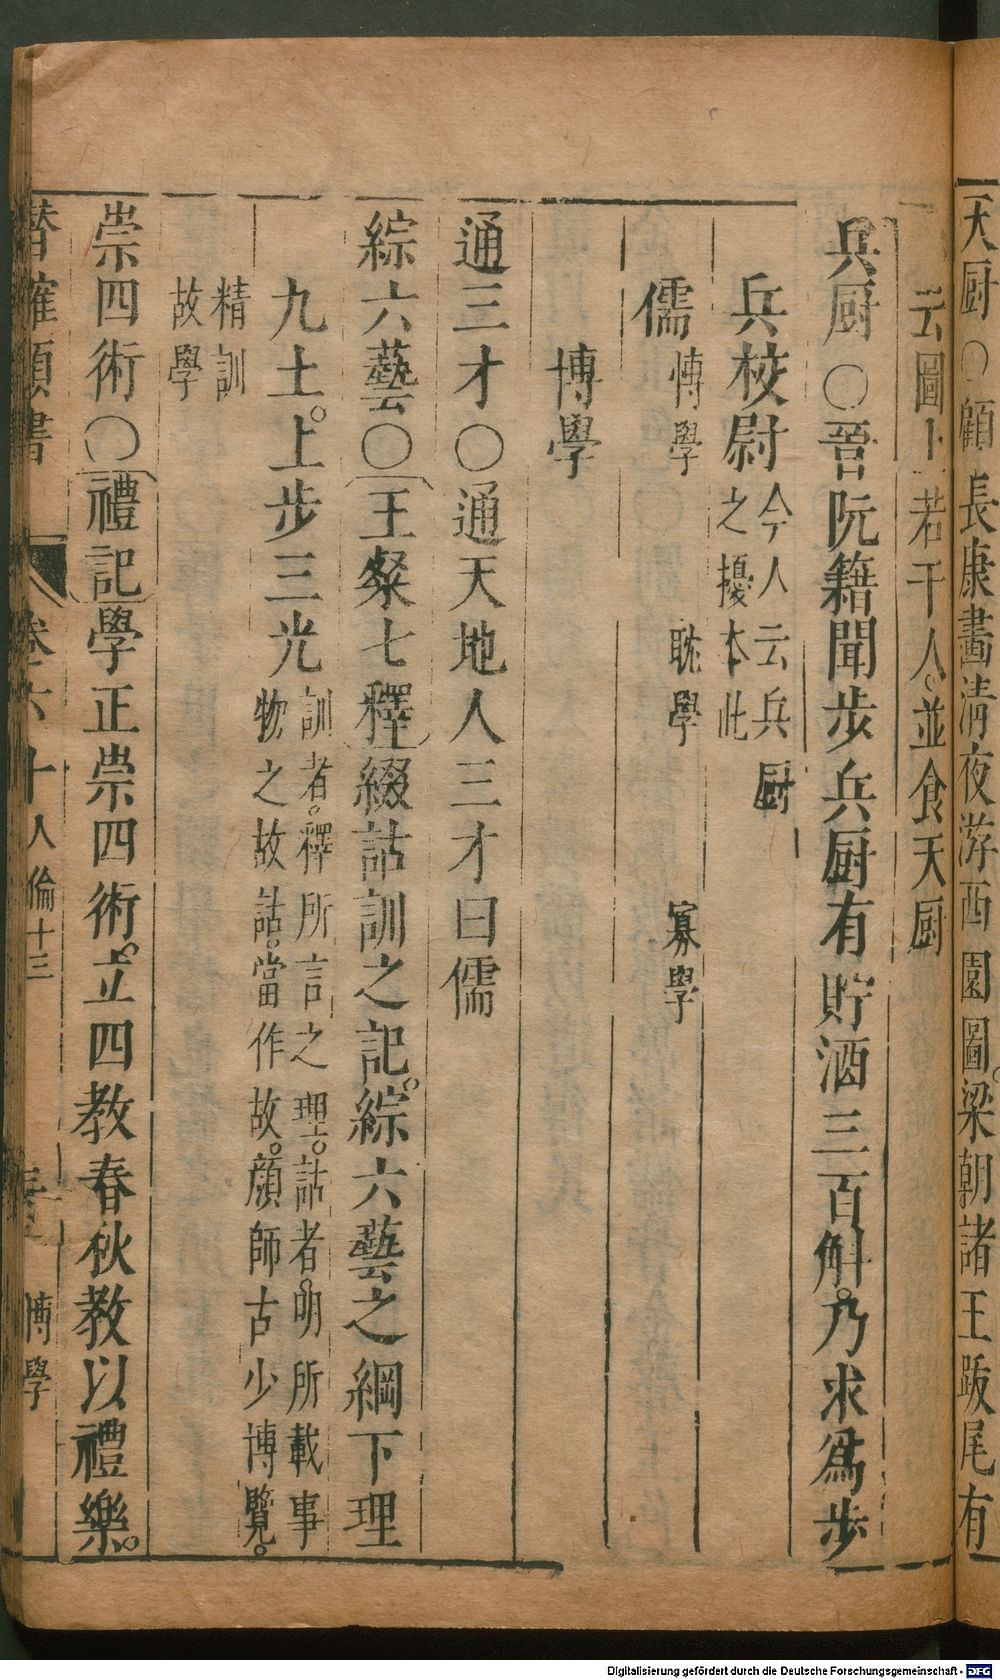 天厨○顧長康畫清夜游西園圖。梁朝諸王跋尾有
云圖上若干人。並食天厨
兵厨○晉阮籍聞步兵厨有貯酒三百斛。乃求爲步
兵校尉今人云兵厨
之擾本此
儒 博學 耽學 寡學
博學
通三才○通天地人三才曰儒
綜六藝○王粲七釋綴詁訓之記。綜六藝之綱下理
九土。上步三光訓者。釋所言之理。詁者。明所載事
物之故詁。當作故。顔師古少博覽。
精訓
故學
崇四術○禮記學正崇四術。立四教春秋教以禮樂。
潛確類書 卷六十 人倫十三 博學
Digitalisierung gefördert durch die Deutsche Forschungsgemeinschaft - DFG